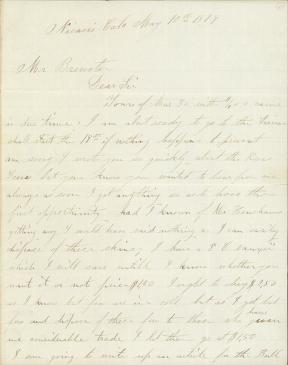 Nicasio Cala May 10th 18
Mr Brewster
Dear Sir
Yours of Mar 30 with $ came
in due time. I am about ready to go to the
shall start the 18th if nothing happens to prevent
am sorry I wrote you so quickly about the
but you know you wanted to hear from me
always as soon I got anything so took those the
first opportunity had I known of Mr Henshaws
getting any I would have said nothing as I can easily
dispose of these skins, I have a
which I will save untill I know whether you
want it or not price $ I ought to
as I know but few are in a coll, but as I get but
few and dispose of these few to those who
me considerable trade I let them go at $1,50
I am going to write up an article for the Bull